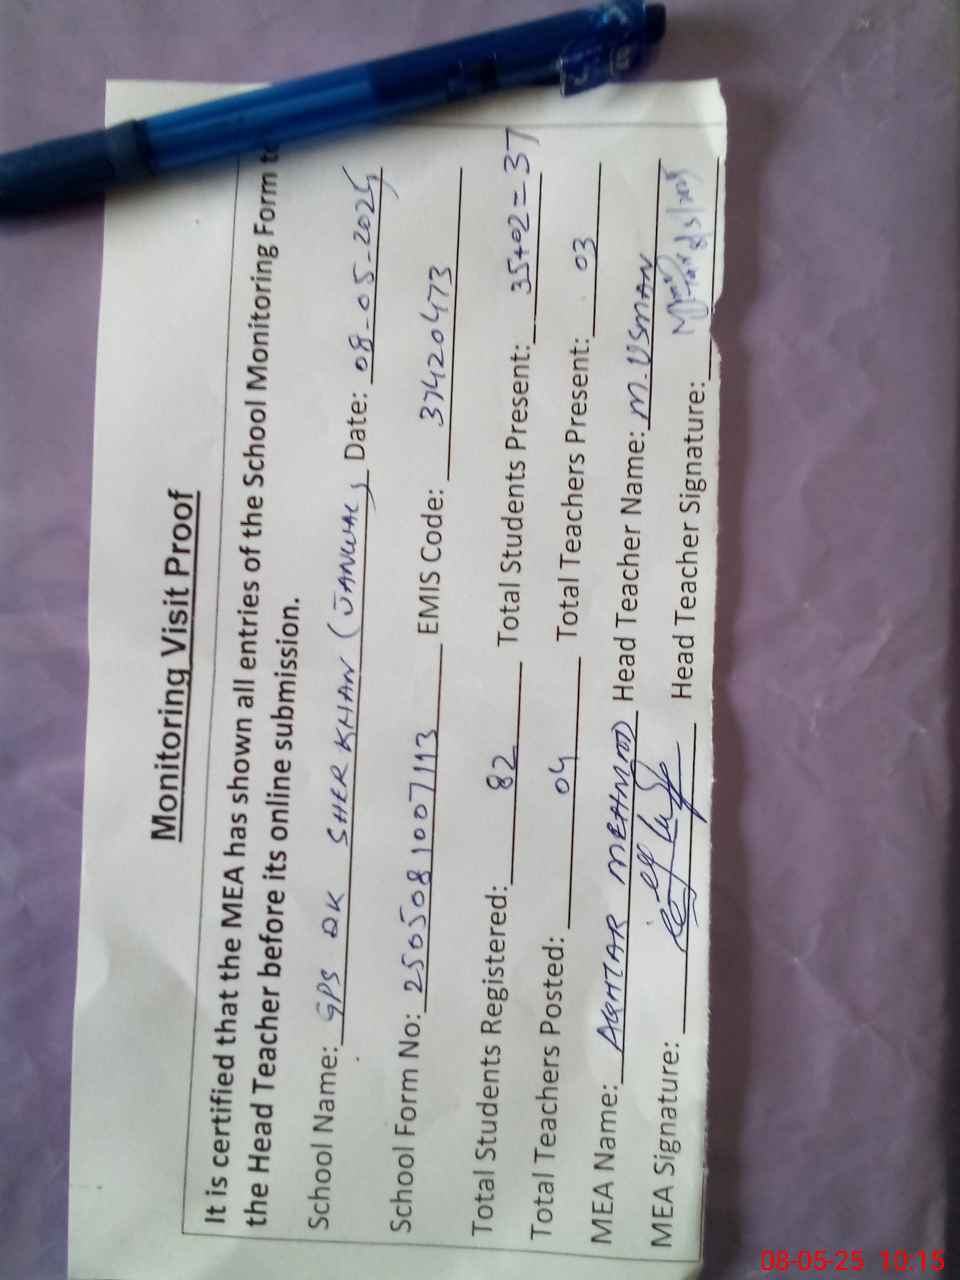 Monitoring Visit Proof
It is certified that the MEA has shown all entries of the School Monitoring Form to
the Head Teacher before its online submission.
School Name: GPS DK SHER KHAN (JANWAL) Date: 08-05-2025
School Form No: 2505081007113 EMIS Code: 37420473
Total Students Registered: 82 Total Students Present: 35+02=37
Total Teachers Posted: 04 Total Teachers Present: 03
MEA Name: AKHTAR MEHMOOD Head Teacher Name: M. USMAN
MEA Signature: Head Teacher Signature:
08-05-25 10:15